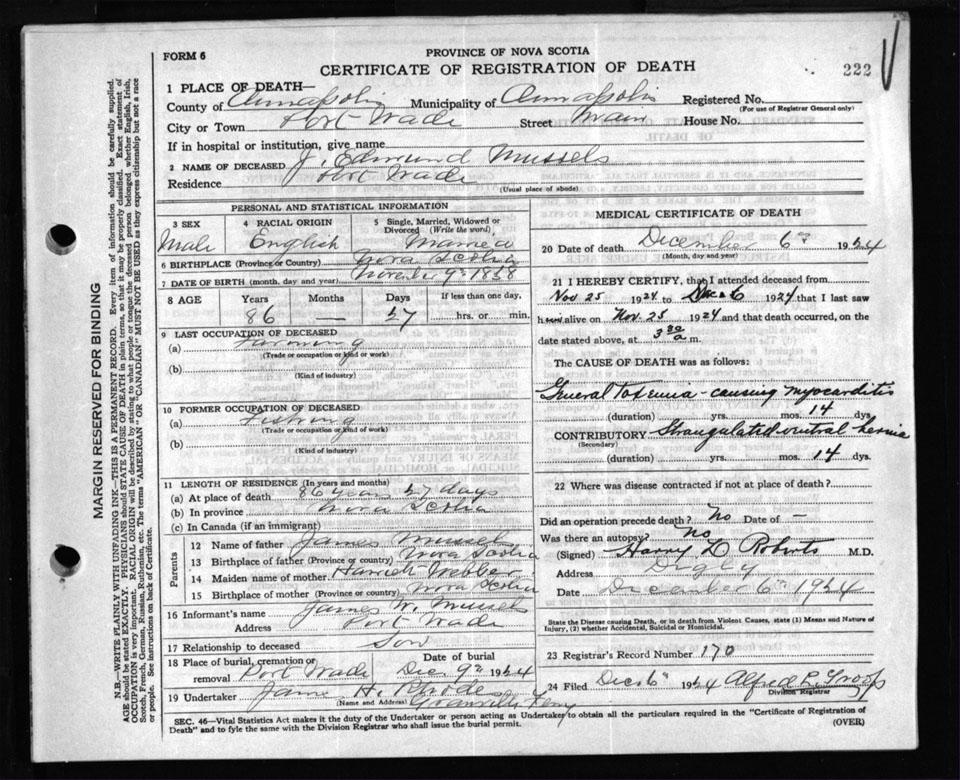 FORM 6
PROVINCE OF NOVA SCOTIA
CERTIFICATE OF REGISTRATION OF DEATH
222
1 PLACE OF DEATH—
County of Annapolis Municipality of Annapolis Registered No.
(For use of Registrar General only)
City or Town Port Wade Street Main House No.
If in hospital or institution, give name
2 NAME OF DECEASED J. Edmund Mussels
Residence Port Wade
(Usual place of abode)
PERSONAL AND STATISTICAL INFORMATION
3 SEX 4 RACIAL ORIGIN 5 Single, Married, Widowed or Divorced (Write the word)
Male English Married
6 BIRTHPLACE (Province or Country) Nova Scotia
7 DATE OF BIRTH (month, day and year) November 9th 1838
8 AGE Years Months Days If less than one day,
86 — 27 hrs. or min.
9 LAST OCCUPATION OF DECEASED
(a) Farming
(Trade or occupation or kind of work)
(b)
(Kind of industry)
10 FORMER OCCUPATION OF DECEASED
(a) Fishing
(Trade or occupation or kind of work)
(b)
(Kind of industry)
11 LENGTH OF RESIDENCE (In years and months)
(a) At place of death 86 years 27 days
(b) In province Nova Scotia
(c) In Canada (if an immigrant)
Parents
12 Name of father James Mussels
13 Birthplace of father (Province or country) Nova Scotia
14 Maiden name of mother Harriet Webber
15 Birthplace of mother (Province or country) Nova Scotia
16 Informant's name James W. Mussels
Address Port Wade
17 Relationship to deceased Son
18 Place of burial, cremation or removal Port Wade Date of burial Dec. 9th 1924
19 Undertaker James H. Rhodes
(Name and Address) Granville Ferry
MEDICAL CERTIFICATE OF DEATH
20 Date of death December 6th 1924
(Month, day and year)
21 I HEREBY CERTIFY, that I attended deceased from
Nov 25 1924 to Dec 6 1924 that I last saw
h alive on Nov. 25 1924 and that death occurred, on
date stated above, at 3 30 a m.
The CAUSE OF DEATH was as follows:
General Toxemia - causing myocarditis
(duration) yrs. mos. 14 dys.
CONTRIBUTORY Strangulated ventral hernia
(Secondary)
(duration) yrs. mos. 14 dys.
22 Where was disease contracted if not at place of death?
Did an operation precede death? No Date of —
Was there an autopsy? No
(Signed) Harry L Roberts M.D.
Address Digby
Date December 6th 1924
State the Disease causing Death, or in death from Violent Causes, state (1) Means and Nature of
Injury, (2) whether Accidental, Suicidal or Homicidal.
23 Registrar's Record Number 170
24 Filed Dec 6th 1924 Alfred R. Troop
Division Registrar
SEC. 46—Vital Statistics Act makes it the duty of the Undertaker or person acting as Undertaker to obtain all the particulars required in the "Certificate of Registration of
Death" and to fyle the same with the Division Registrar who shall issue the burial permit.
(OVER)
MARGIN RESERVED FOR BINDING
N.B.—WRITE PLAINLY WITH UNFADING INK—THIS IS A PERMANENT RECORD. Every item of information should be carefully supplied.
AGE should be stated EXACTLY. PHYSICIANS should STATE CAUSE OF DEATH in plain terms, so that it may be properly classified. Exact statement of
OCCUPATION is very important. RACIAL ORIGIN will be described by stating to what people or tongue the deceased person belonged, whether English, Irish,
Scotch, French, German, Russian, Ruthenian, etc. The terms "AMERICAN" OR "CANADIAN" MUST NOT BE USED as they express citizenship but not a race
or people. See instructions on back of Certificate.